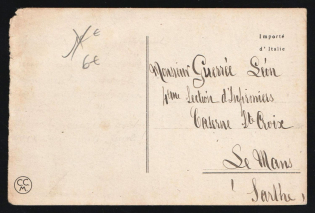 Importé
d'Italie
6€
Monsieur Guerrée Léon
Section d'Infirmiers
Caserne Ste Croix
Le Mans
Sarthe
CCM